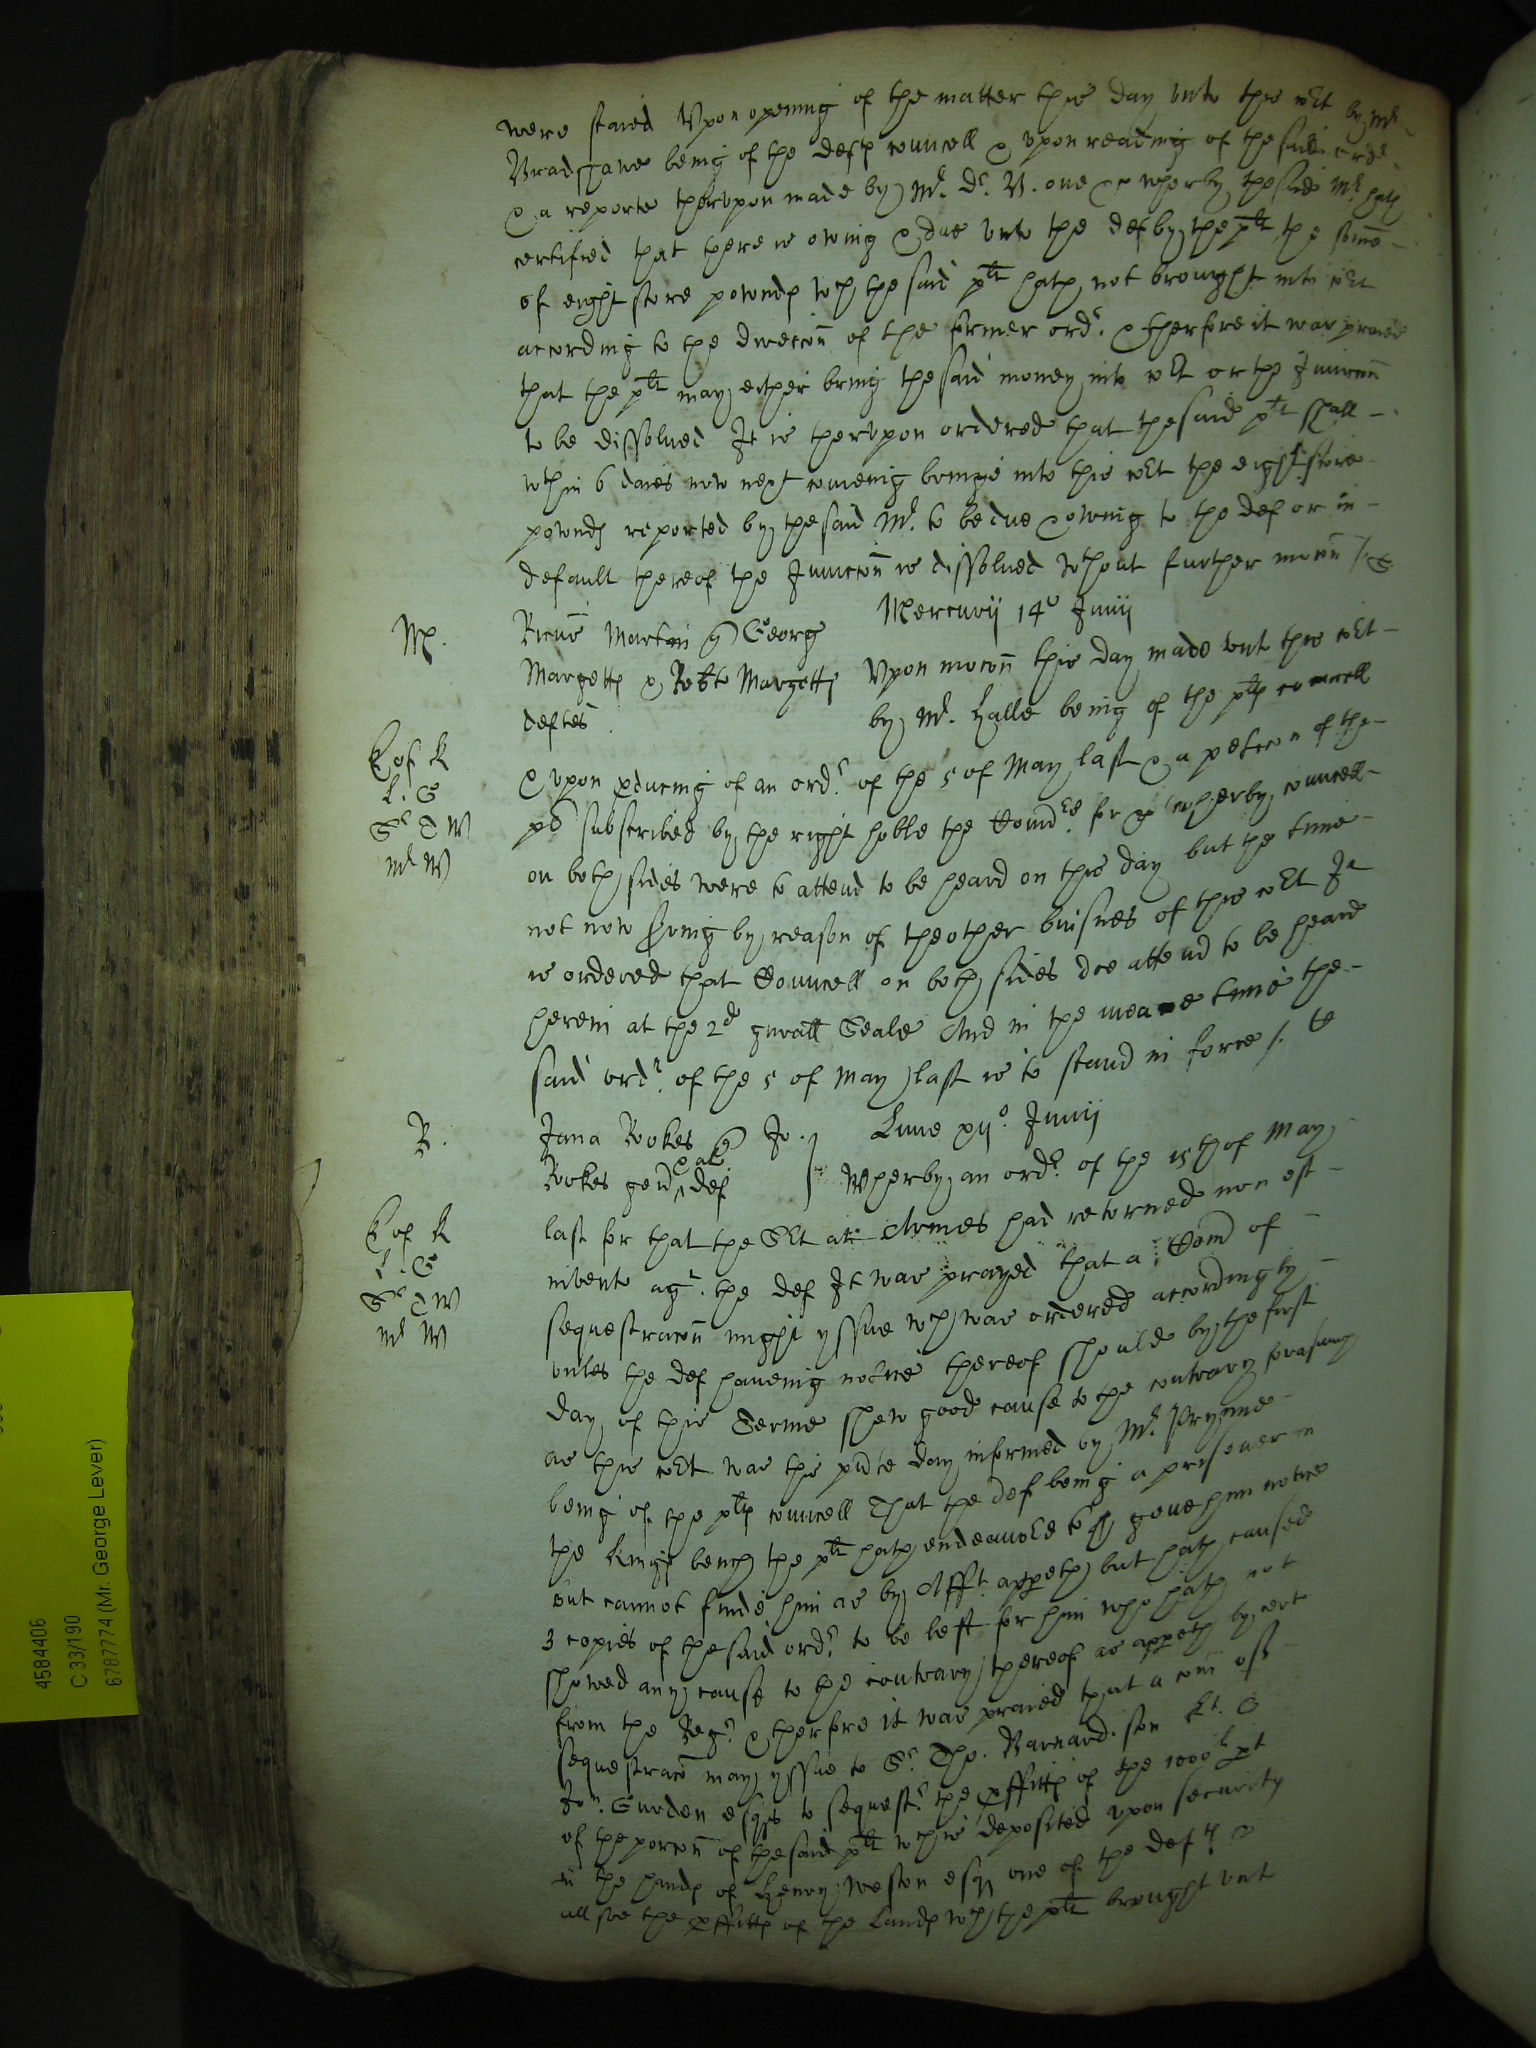 were staied Upon opening of the matter this day unto this Cort by Mr
Bradshawe being of the defts councell & upon reading of the said ordr
& a reporte therupon made by Mr. Dr. wherby the said Mr. hath
certified that there is owing & due unto the def by the plt the some
of eight score pownds wch the said plt hath not brought into Cort
according to the direccon of the former ordr. & therfore it was praied
that the plt may either bring the said money into Cort or the Iniunccon
to be dissolved It is therupon ordered that the said plt shall
wthin 6 daies now next comeing bringe into this Cort the eight score
pownds reported by the said Mr. to be due & owing to the def or in
default thereof the Iniunccon is dissolved wthout further mocon
Mercurii 14o Junii
M.
Martin q George
Margetts & Robte Margetts
deftes.
Upon mocon this day made unt this Cort
by Mr. Halle being of the plts councell
& upon pducing of an ordr of the 5 of May last & a peticon of the
pd subscribed by the right hoble the Comrs for &c wherby councell
on both sides were to attend to be heard on this day but the time
not now serving by reason of the other buisnes of this Cort It
is ordered that Councell on both sides doe attend to be heard
herein at the 2d gnrall Seale And in the meane time the
said ordr. of the 5 of May last is to stand in force
E of K
L. G
Sr T W
Mr W
R.
Jana Rookes q Jo.
Rookes gen & al def
Lune xiio Junii
Wherby an ordr. of the 15th of May
last for that the Sert at Armes had retorned non est
invento agt. the def It was prayed that a Com of
sequestracon might yssue wch was ordered accordingly
unles the def haveing notice thereof should by the first
day of this Terme shew good cause to the contrary forasmuch
as this Cort was this pnte day informed by Mr. Prynne
being of the plts councell That the def being a prisoner in
the Kings bench the plt hath endeavored to geve him notice
but cannot finde him as by Afft. appeth but hath caused
3 copies of the said ordr. to be left for him who hath not
shewed any cause to the contrary thereof as appeth by cert
from the Regr. & therfore it was praied that a com of
sequestracon may yssue to Sr. Tho. Barnardiston Kt. &
Jon. Gurden esqrs to sequestr. the pffitts of the 1000l pt
of the porcon of the said plt wch is deposited upon security
in the hands of Henry Weston esq one of the def &
allsoe the pffitts of the Lands wch the plt brought unt
E of K
L. G
Sr T W
Mr W
4584406
C 33/190
6787774 (Mr. George Lever)